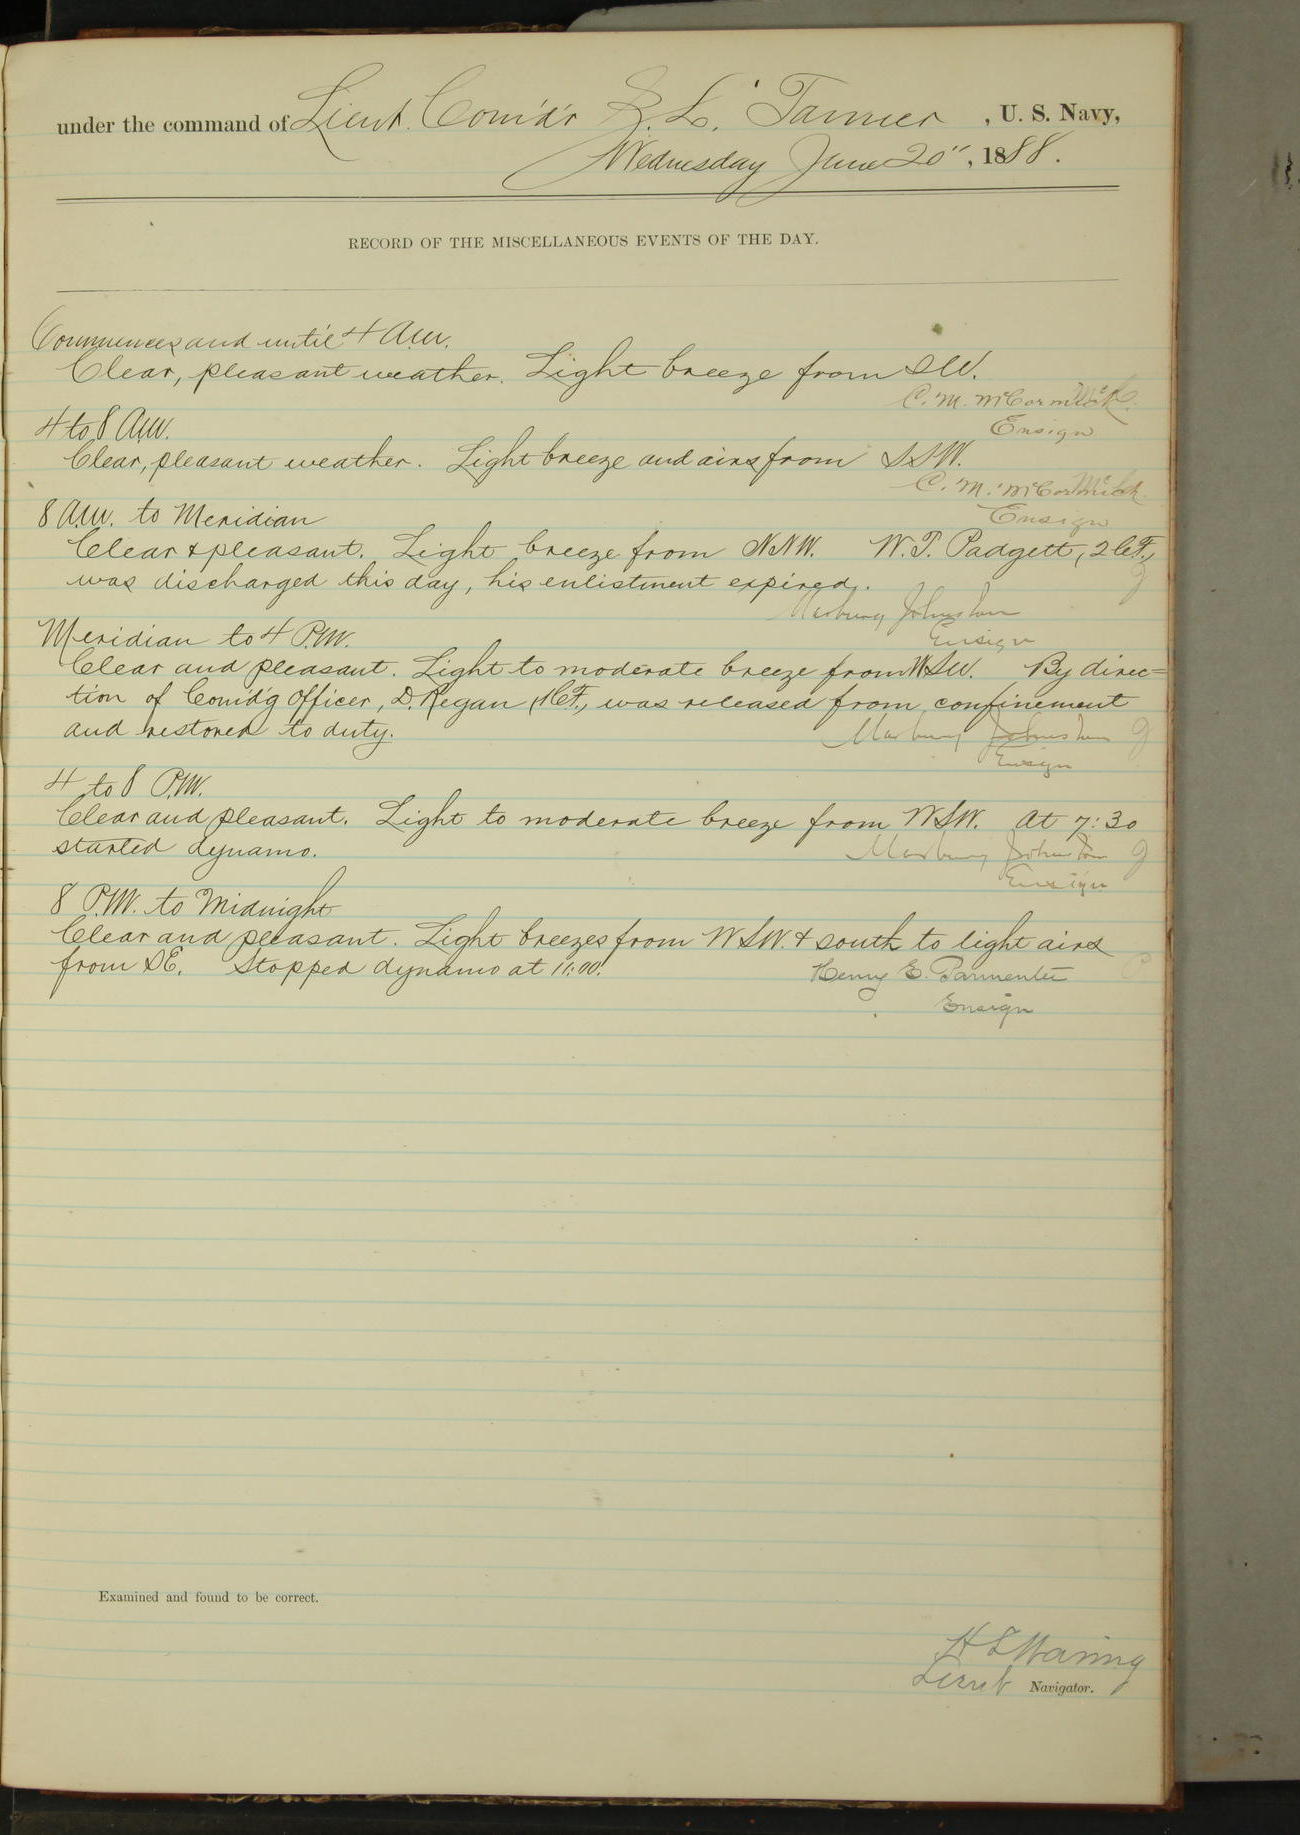 under the command of Lieut. Com'd'r Z. L. Tanner, U. S. Navy,
Wednesday June 20", 1888.
RECORD OF THE MISCELLANEOUS EVENTS OF THE DAY.
Commences and until 4 A.M.
Clear, pleasant weather. Light breeze from SW.
C. M. McCormick
Ensign
4 to 8 A.M.
Clear, pleasant weather. Light breeze and airs from SSW.
C. M. McCormick
Ensign
8 A.M. to Meridian
Clear & pleasant. Light breeze from NNW. W. T. Padgett,
was discharged this day, his enlistment expired.
Marbury Johnston
Ensign
Meridian to 4 P.M.
Clear and pleasant. Light to moderate breeze from WSW. By direc=
tion of Com'd'g Officer, D. Regan, was released from confinement
and restored to duty.
Marbury Johnston
Ensign
4 to 8 P.M.
Clear and pleasant. Light to moderate breeze from WSW. At 7:30
started dynamo.
Marbury Johnston
Ensign
8 P.M. to Midnight
Clear and pleasant. Light breezes from WSW. & south to light airs
from SE. Stopped dynamo at 11:00.
Henry E. Parmenter
Ensign
Examined and found to be correct.
H E Waring
Lieut Navigator.